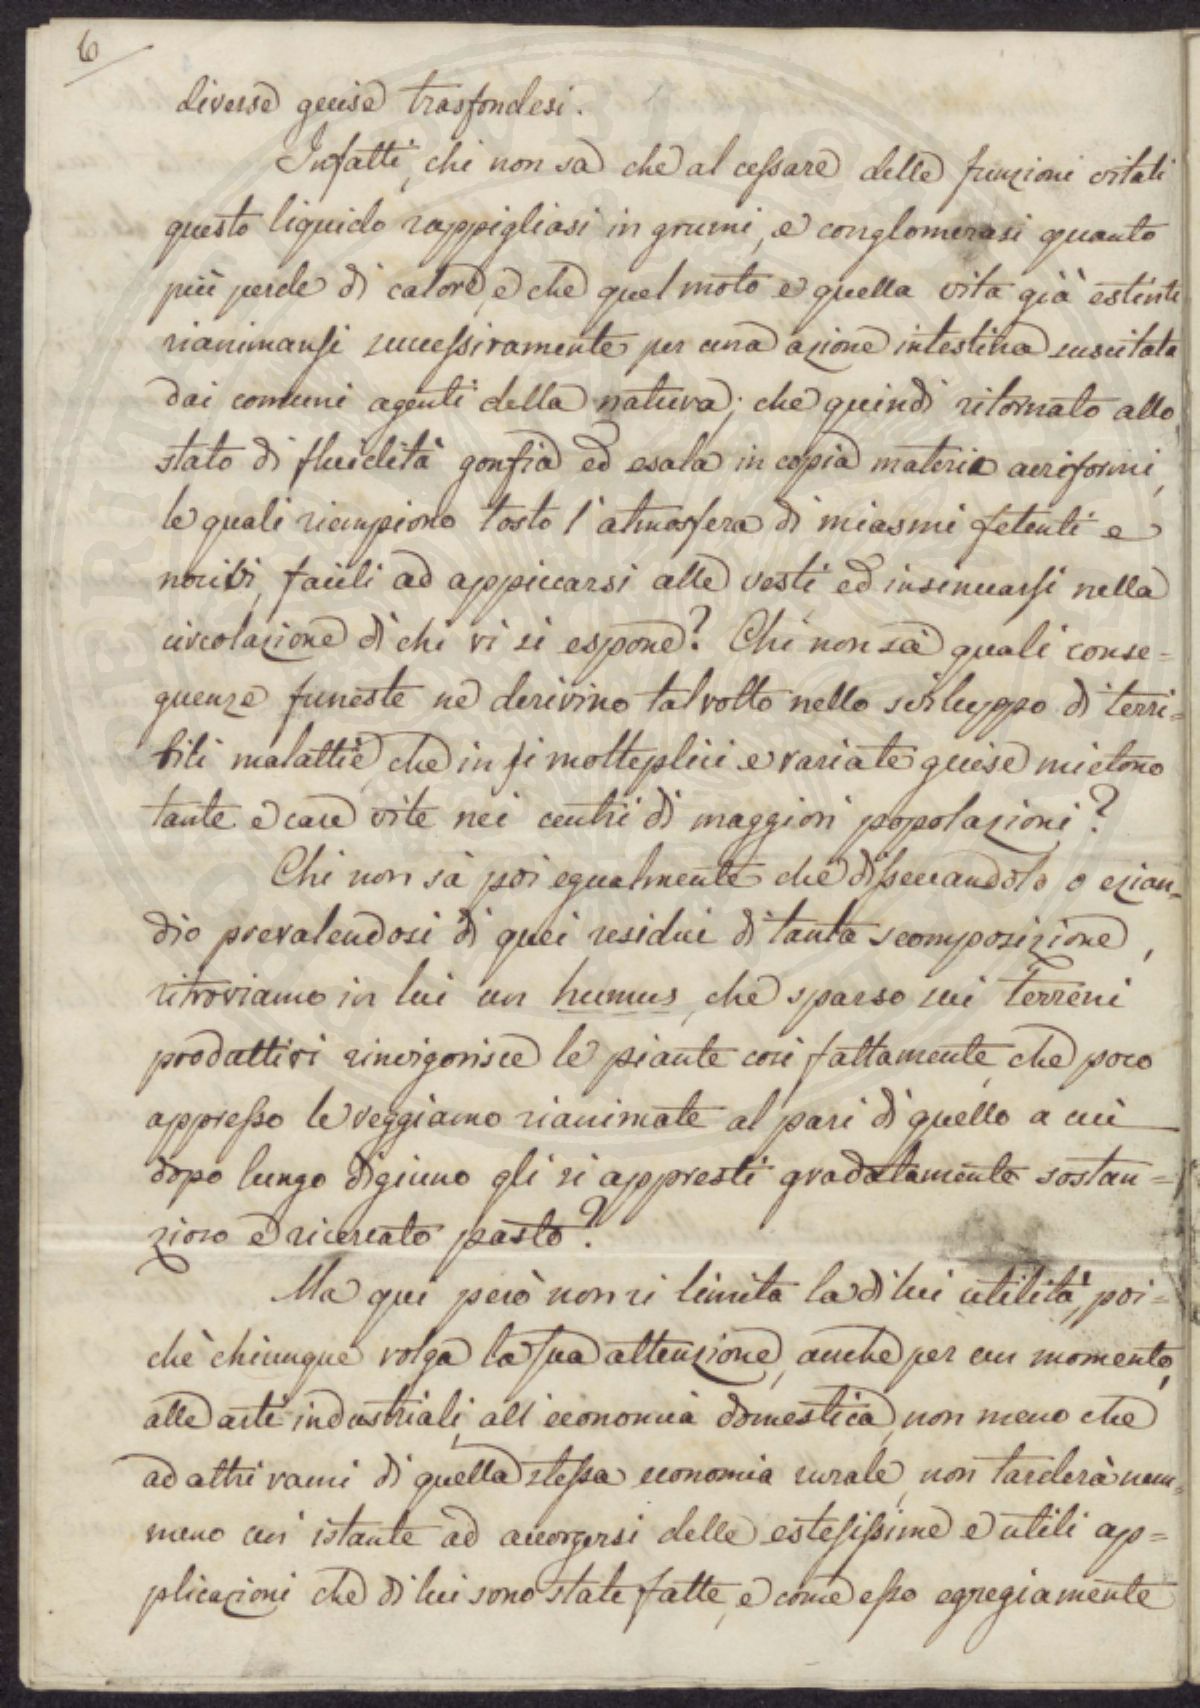 6
diverse guise trasfondesi.
Infatti, chi non sa che al cessare delle funzioni vitali
questo liquido rappigliasi in grumi, e conglomerasi quanto
più perde di calore, e che quel moto e quella vita già estinti
rianimansi successivamente per una azione intestina suscitata
dai comuni agenti della natura; che quindi ritornato allo
stato di fluidità gonfia ed esala in copia materie aeriformi,
le quali riempiono tosto l'atmosfera di miasmi fetenti e
nocivi, facili ad appiccarsi alle vesti ed insinuarsi nella
circolazione di chi vi si espone? Chi non sà quali conse=
guenze funeste ne derivino talvolta nello sviluppo di terri=
bili malattie, che in si molteplici e variate guise mietono
tante e care vite nei centri di maggiori popolazioni?
Chi non sà poi egualmente che disseccandolo o ezian=
dio prevalendosi di quei residui di tanta scomposizione,
ritroviamo in lui un humus, che sparso sui terreni
produttivi rinvigorisce le piante così fattamente, che poco
appresso le veggiamo rianimate al pari di quello a cui
dopo lungo digiuno gli si appresti gradatamente sostan=
zioso e ricercato pasto?
Ma qui però non si limita la di lui utilità, poi=
chè chiunque volga la sua attenzione, anche per un momento,
alle arti industriali, all'economia domestica, non meno che
ad altri rami di quella stessa economia rurale, non tarderà nem=
meno un istante ad accorgersi delle estesissime e utili ap=
plicazioni che di lui sono state fatte, e come esso egregiamente